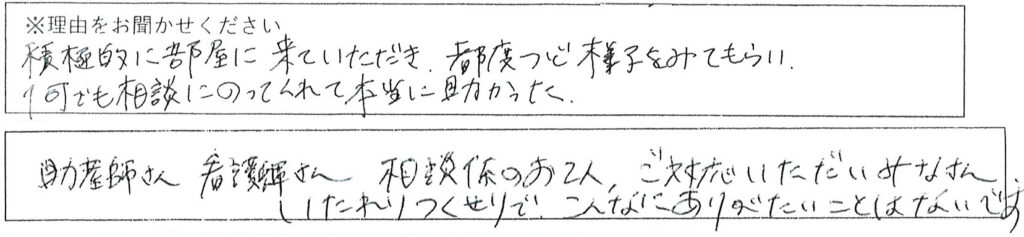 ※理由をお聞かせください
積極的に部屋に来ていただき、都度つど様子をみてもらい、
何でも相談にのってくれて本当に助かった。
助産師さん 看護師さん 相談係のお2人、ご対応いただいみなさん、
いたれりつくせりで、こんなにありがたいことはないです